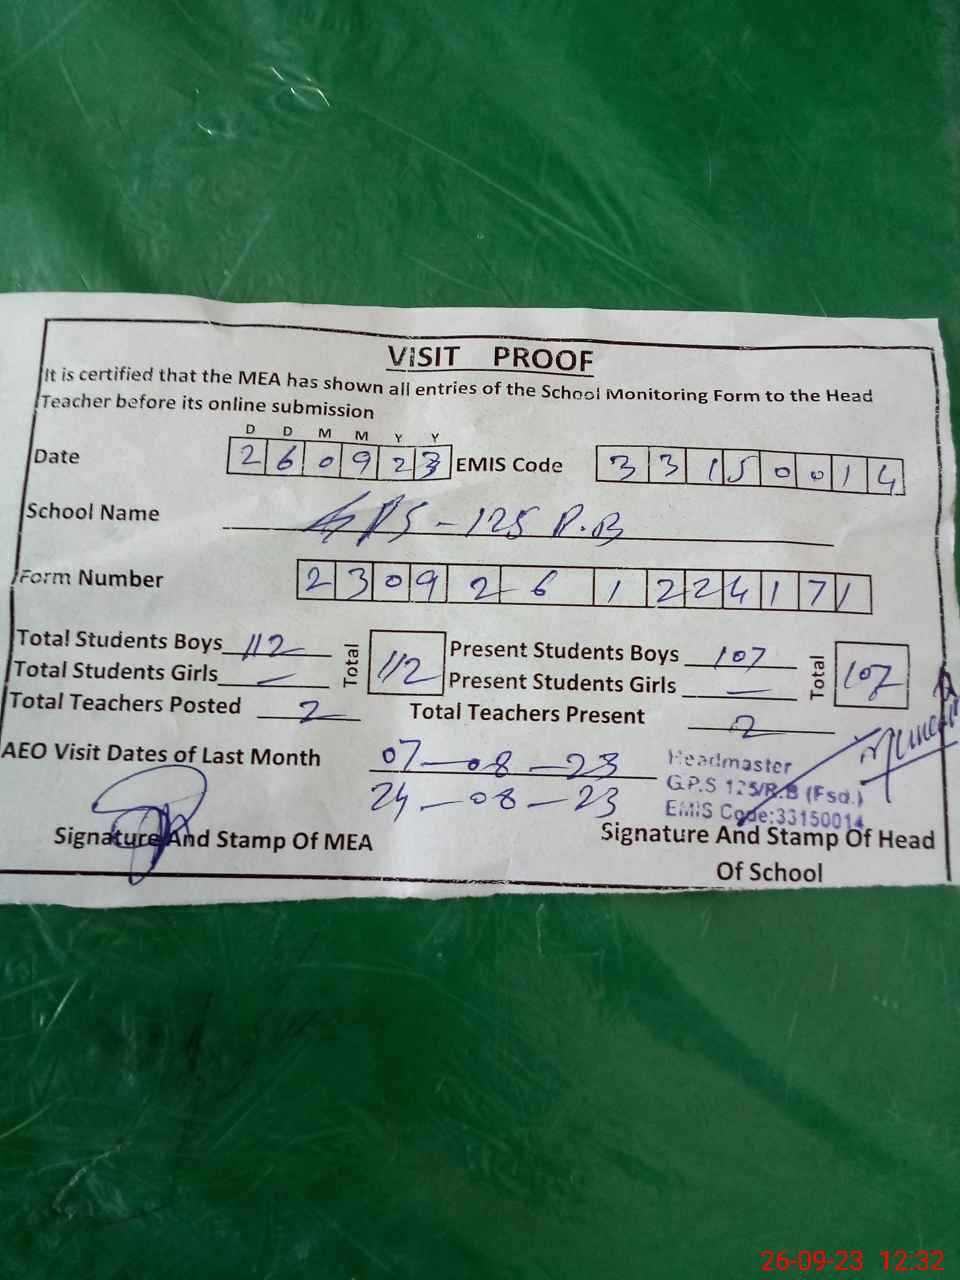 VISIT PROOF
It is certified that the MEA has shown all entries of the School Monitoring Form to the Head
Teacher before its online submission
D D M M Y Y
Date 2 6 0 9 2 3 EMIS Code 3 3 1 5 0 0 1 4
School Name GPS-125 R.B
Form Number 2 3 0 9 2 6 1 2 2 4 1 7 1
Total Students Boys 112 Total 112 Present Students Boys 107 Total 107
Total Students Girls — Present Students Girls —
Total Teachers Posted 2 Total Teachers Present 2
AEO Visit Dates of Last Month 07-08-23
24-08-23
Headmaster
G.P.S 125/R.B (Fsd.)
EMIS Code:33150014
Signature And Stamp Of MEA Signature And Stamp Of Head
Of School
26-09-23 12:32